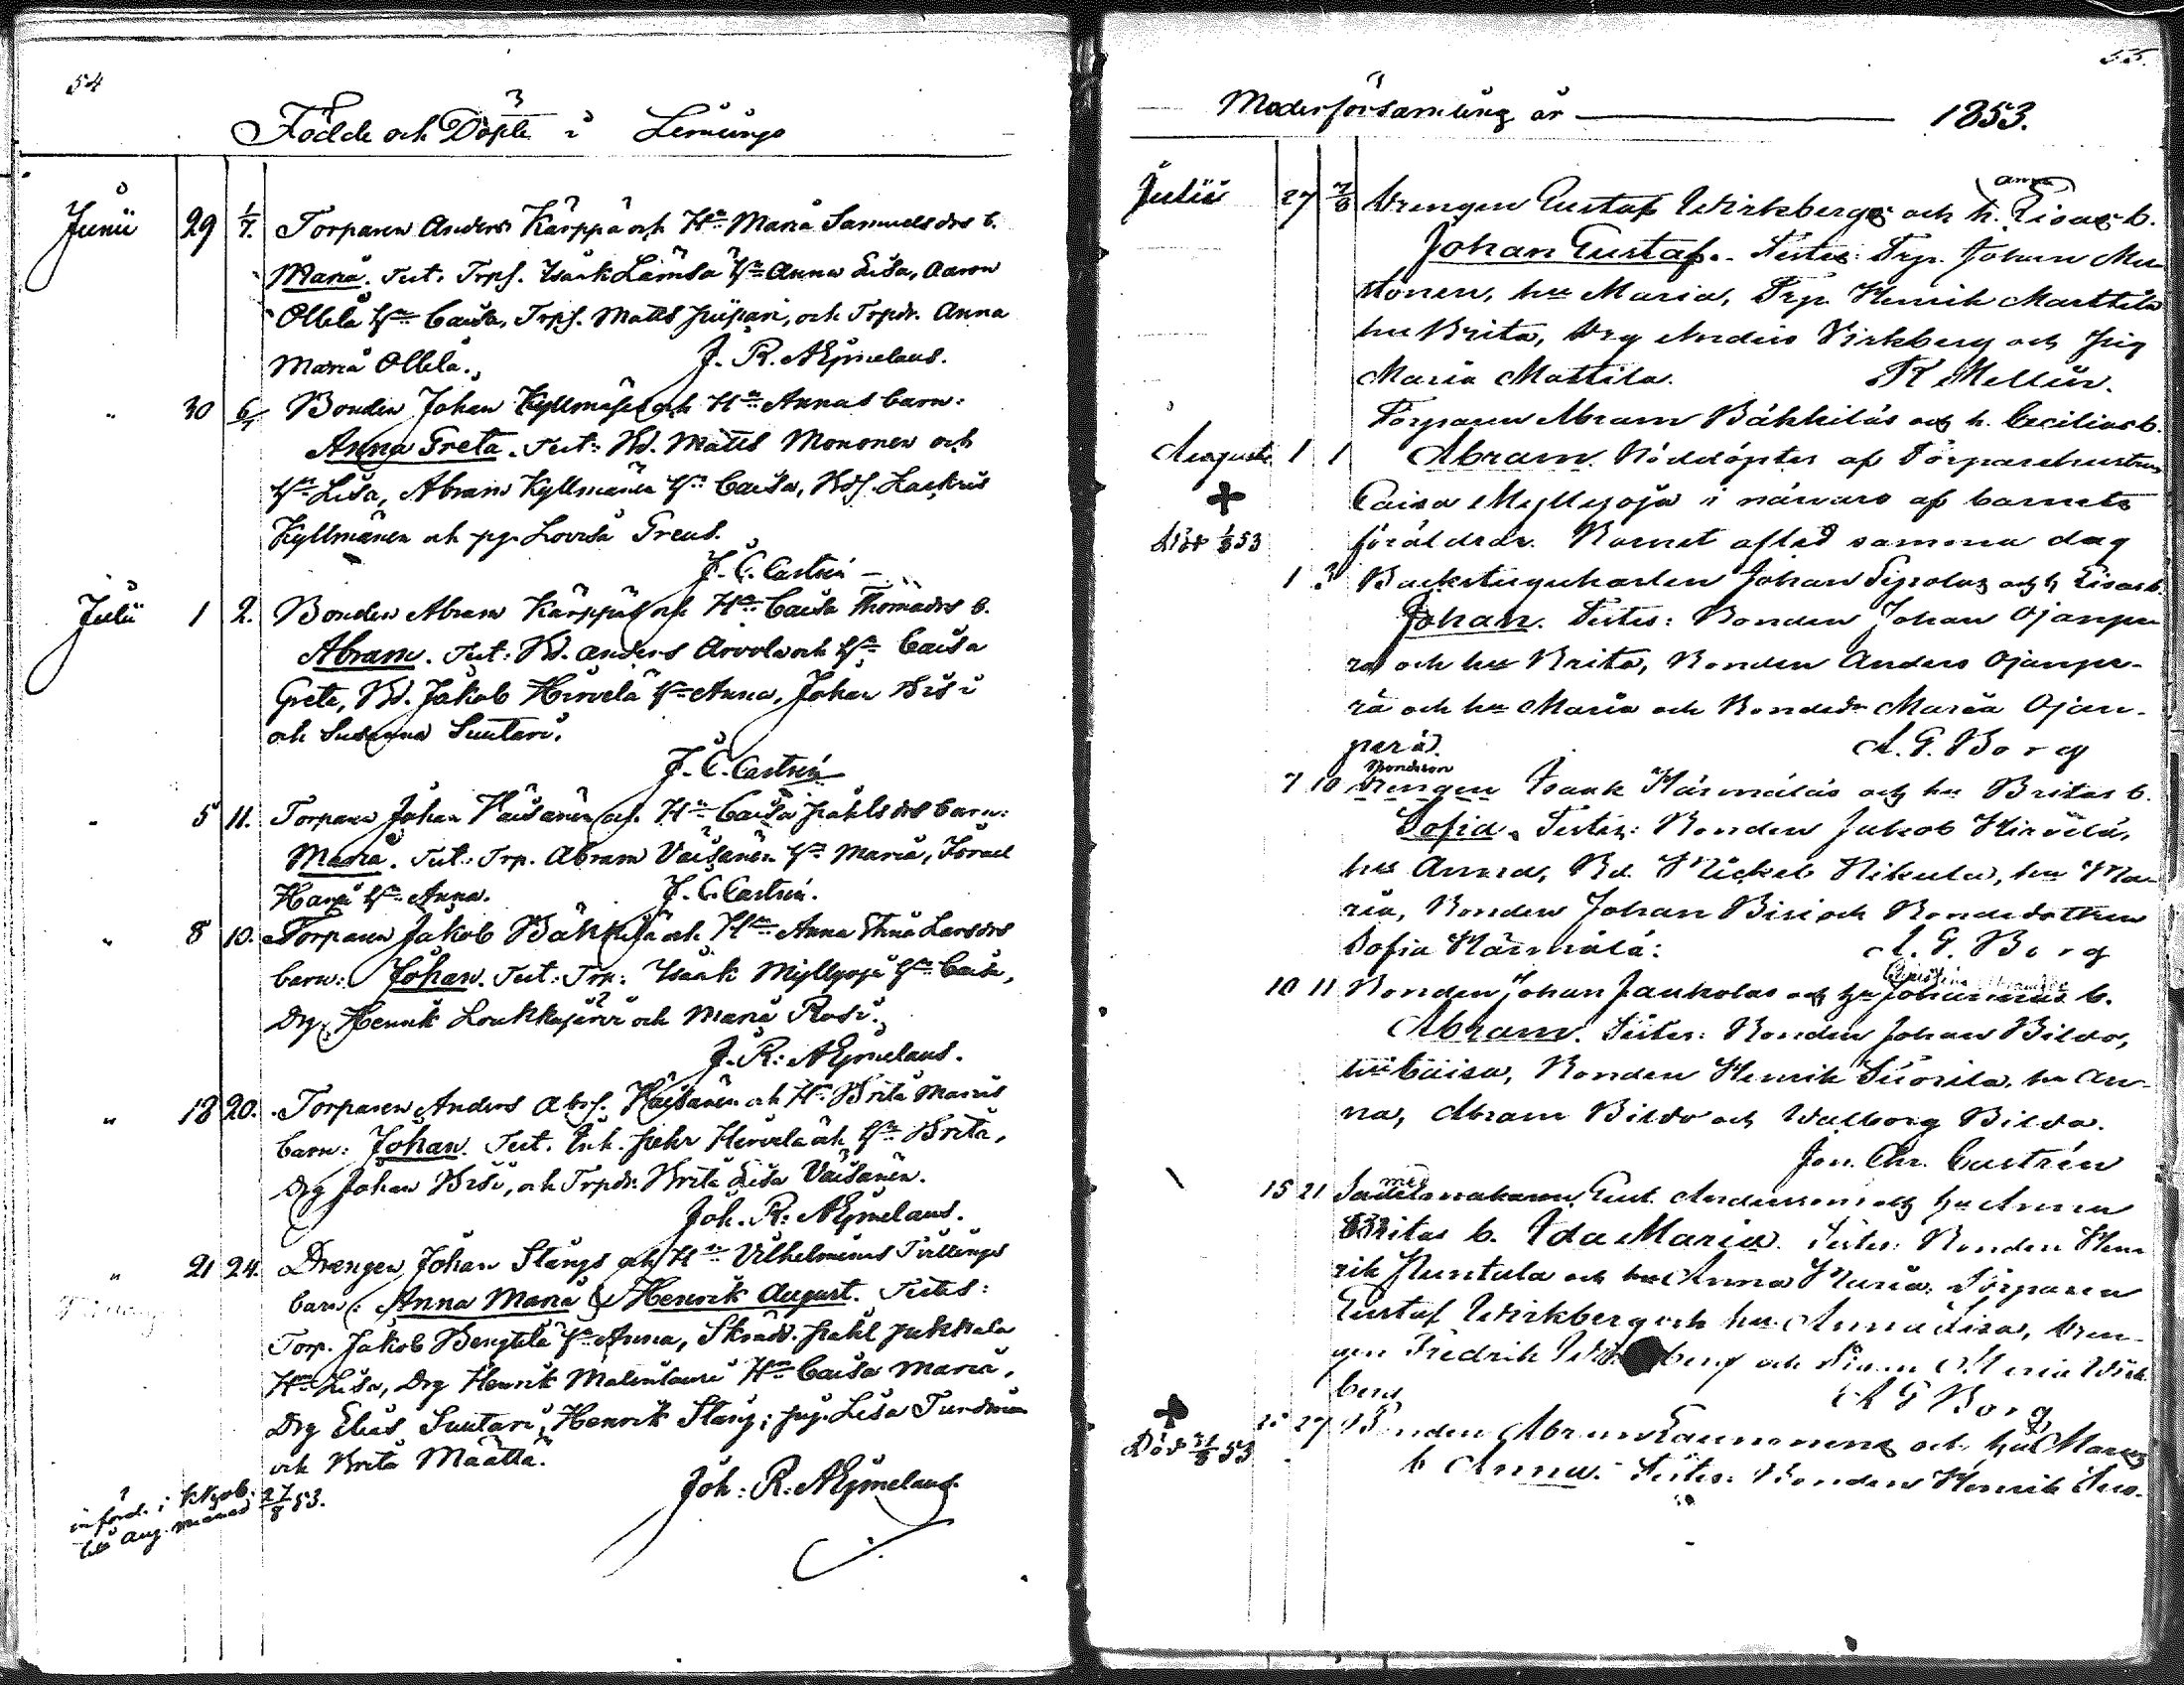 54
Födde och Döpte i Limingo
Junii 29 1/7. Torparen Anders Kärppä och Hu Maria Samuelsdrs b.
Maria. Test. Trps. Isaak Lämsä hu Anna Lisa, Aaron
Ollila hu Caisa, Trps. Matts Piipari, och Trpdr. Anna
Maria Ollila. J. R. AEjmelaeus.
" 30 6/7 Bonden Johan Kyllmäses och Hu Annas barn:
Anna Greta. Test: Bd. Matts Mononen och
hu Lisa, Abram Kyllmänen hu Caisa, Bds. Zachris
Kyllmänen och pg. Lovisa Greus.
J. C. Castrén
Julii 1 2. Bonden Abram Kärppäs och Hu Caisa Thomædrs b.
Abram. Test: Bd. Anders Arvola och hu Caisa
Greta, Bd. Jakob Hirvelä hu Anna, Johan Bisi
och Susanna Suutari.
J. C. Castrén
" 5 11. Torparen Johan Väisänen och Hu Caisa Påhlsdrs barn:
Maria. Test: Trp. Abram Väisänen hu Maria, Israel
Hanni hu Anna. J. C. Castrén.
" 8 10. Torparen Jakob Bäkkilä och Hu Anna Stina Larsdrs
barn: Johan. Test: Trp: Isaak Myllyoja hu Caisa,
Drg. Henrik Loukkojärvi och Maria Rosi.
J. R: AEjmelaeus.
" 18 20. Torparen Anders Abrs. Väisänen och Hu Brita Marias
barn: Johan. Test. Inh. Pehr Hirvelä och hu Brita,
Drg Johan Bisi, och Trpdr. Brita Lisa Väisänen.
Joh. R: AEjmelaeus.
" 21 24. Drengen Johan Stångs och Hu Vilhelminas Tvillings
barn: Anna Maria & Henrik August. Testes:
Torp. Jakob Bengtilä hu Anna, Skrädd. Påhl Pukkala
Hu Lisa, Drg Henrik Matinlauri Hu Caisa Maria,
Drg Elias Suutari, Henrik Stång; pig. Lisa Tundman
och Brita Määttä.
Joh: R: AEjmelaeus.
införd. i kkrob.
till Aug. månad 27/8 53.
55.
Moderförsamling år 1853.
Julii 27 7/8 Drengen Gustaf Wirkbergs och h. Anna Lisas b.
Johan Gustaf. Testes: Trp. Johan Mus
tonen, hu Maria, Trp. Henrik Marttila
hu Brita, Drg Anders Virkberg och Pig
Maria Mattila. K Mellin.
Torparen Abram Bäkkiläs och h. Cecilias b.
Augusti 1 1 Abram. Nöddöptes af Torparehustrun
Caisa Myllyoja i närvaro af barnets
Död 1/8 53 föräldrar. Barnet afled samma dag
1 Backstugukarlen Johan Sipolas och h Lisas b.
Johan. Testes: Bonden Johan Ojanpe
rä och hu Brita, Bonden Anders Ojanpe-
rä och hu Maria och Bondedr Maria Ojan-
perä. A. G. Borg
7 10 Bondson Drengen Isaak Härmäläs och hu Britas b.
Sofia. Testes: Bonden Jakob Hirvelä,
hu Anna, Bd. Mickel Nikula, hu Ma-
ria, Bonden Johan Bisi och Bondedottren
Sofia Härmälä: A. G. Borg
10 11 Bonden Johan Jaukolas och hu Johannas b. Christina
Abram. Testes: Bonden Johan Bildo,
hu Caisa, Bonden Henrik Suorila, hu An-
na, Abram Bildo och Walborg Bildo.
Jon. Chr. Castrén
15 21 Gust. Andersson och hu Anna
Britas b. Ida Maria. Testes: Bonden Hen
rik Huntula och hu Anna Maria, Torparen
Gustaf Wirkberg och hu Anna Lisa, Dren-
gen Fredrik Wirkberg och Pigan Maria Wirk
berg A G Borg
27 Bonden Abram Launonens och hu Marias
Död 31/8 53 b. Anna. Testes: Bonden Henrik Suo-